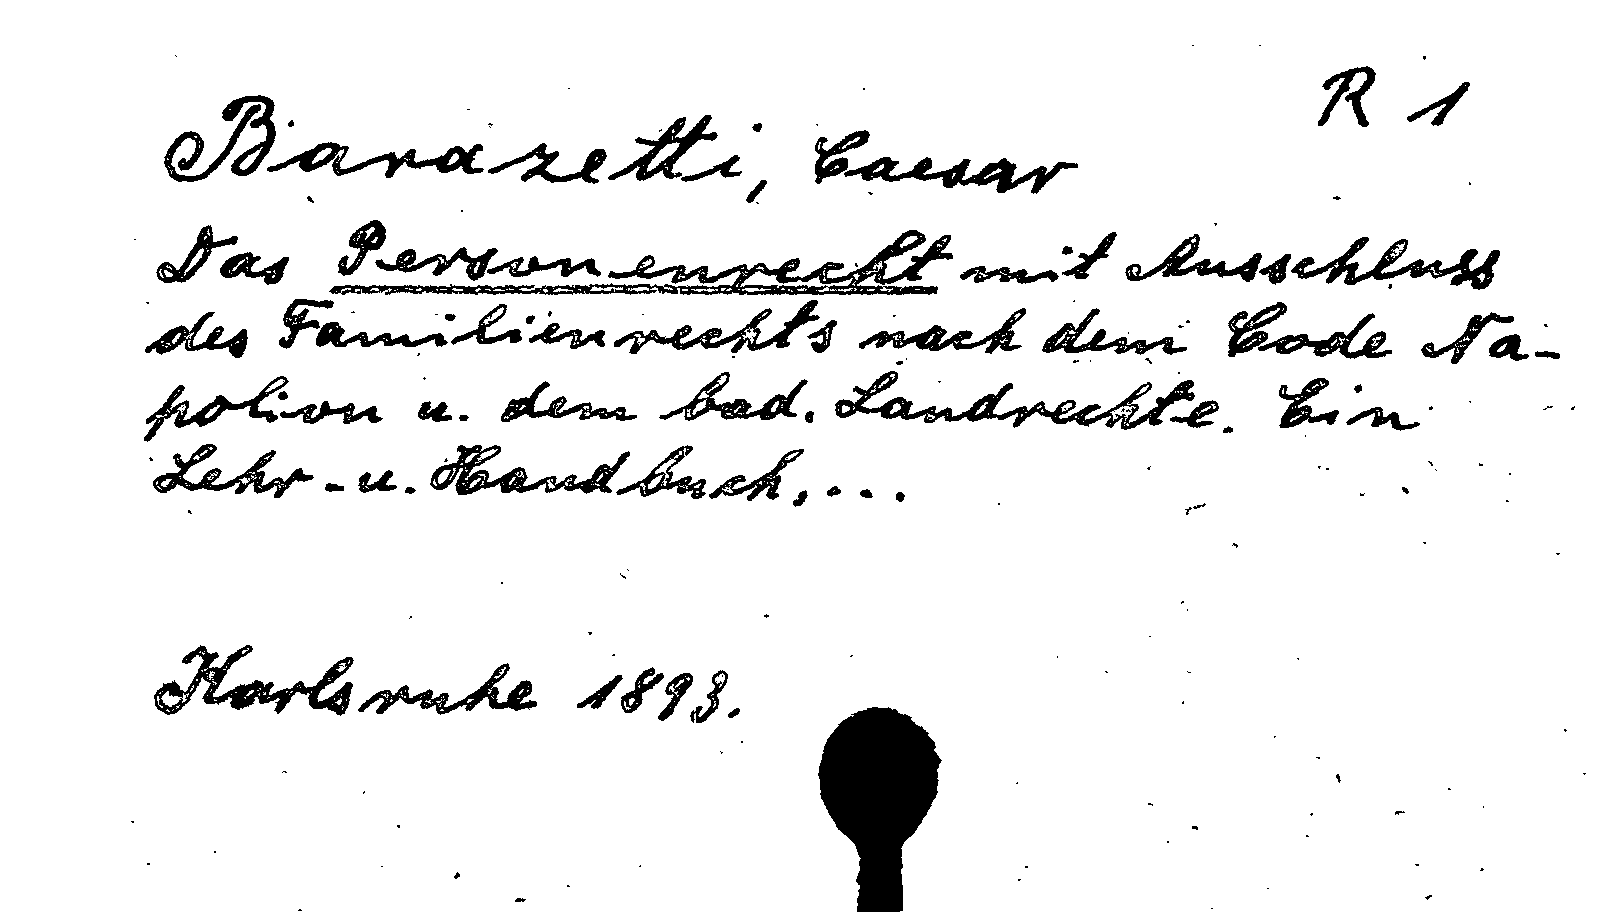 R 1
Barazetti, Caesar
Das Personenrecht mit Ausschluss
des Familienrechts nach dem Code Na-
polion u. dem bad. Landrechte. Ein
Lehr- u. Handbuch....
Karlsruhe 1893.